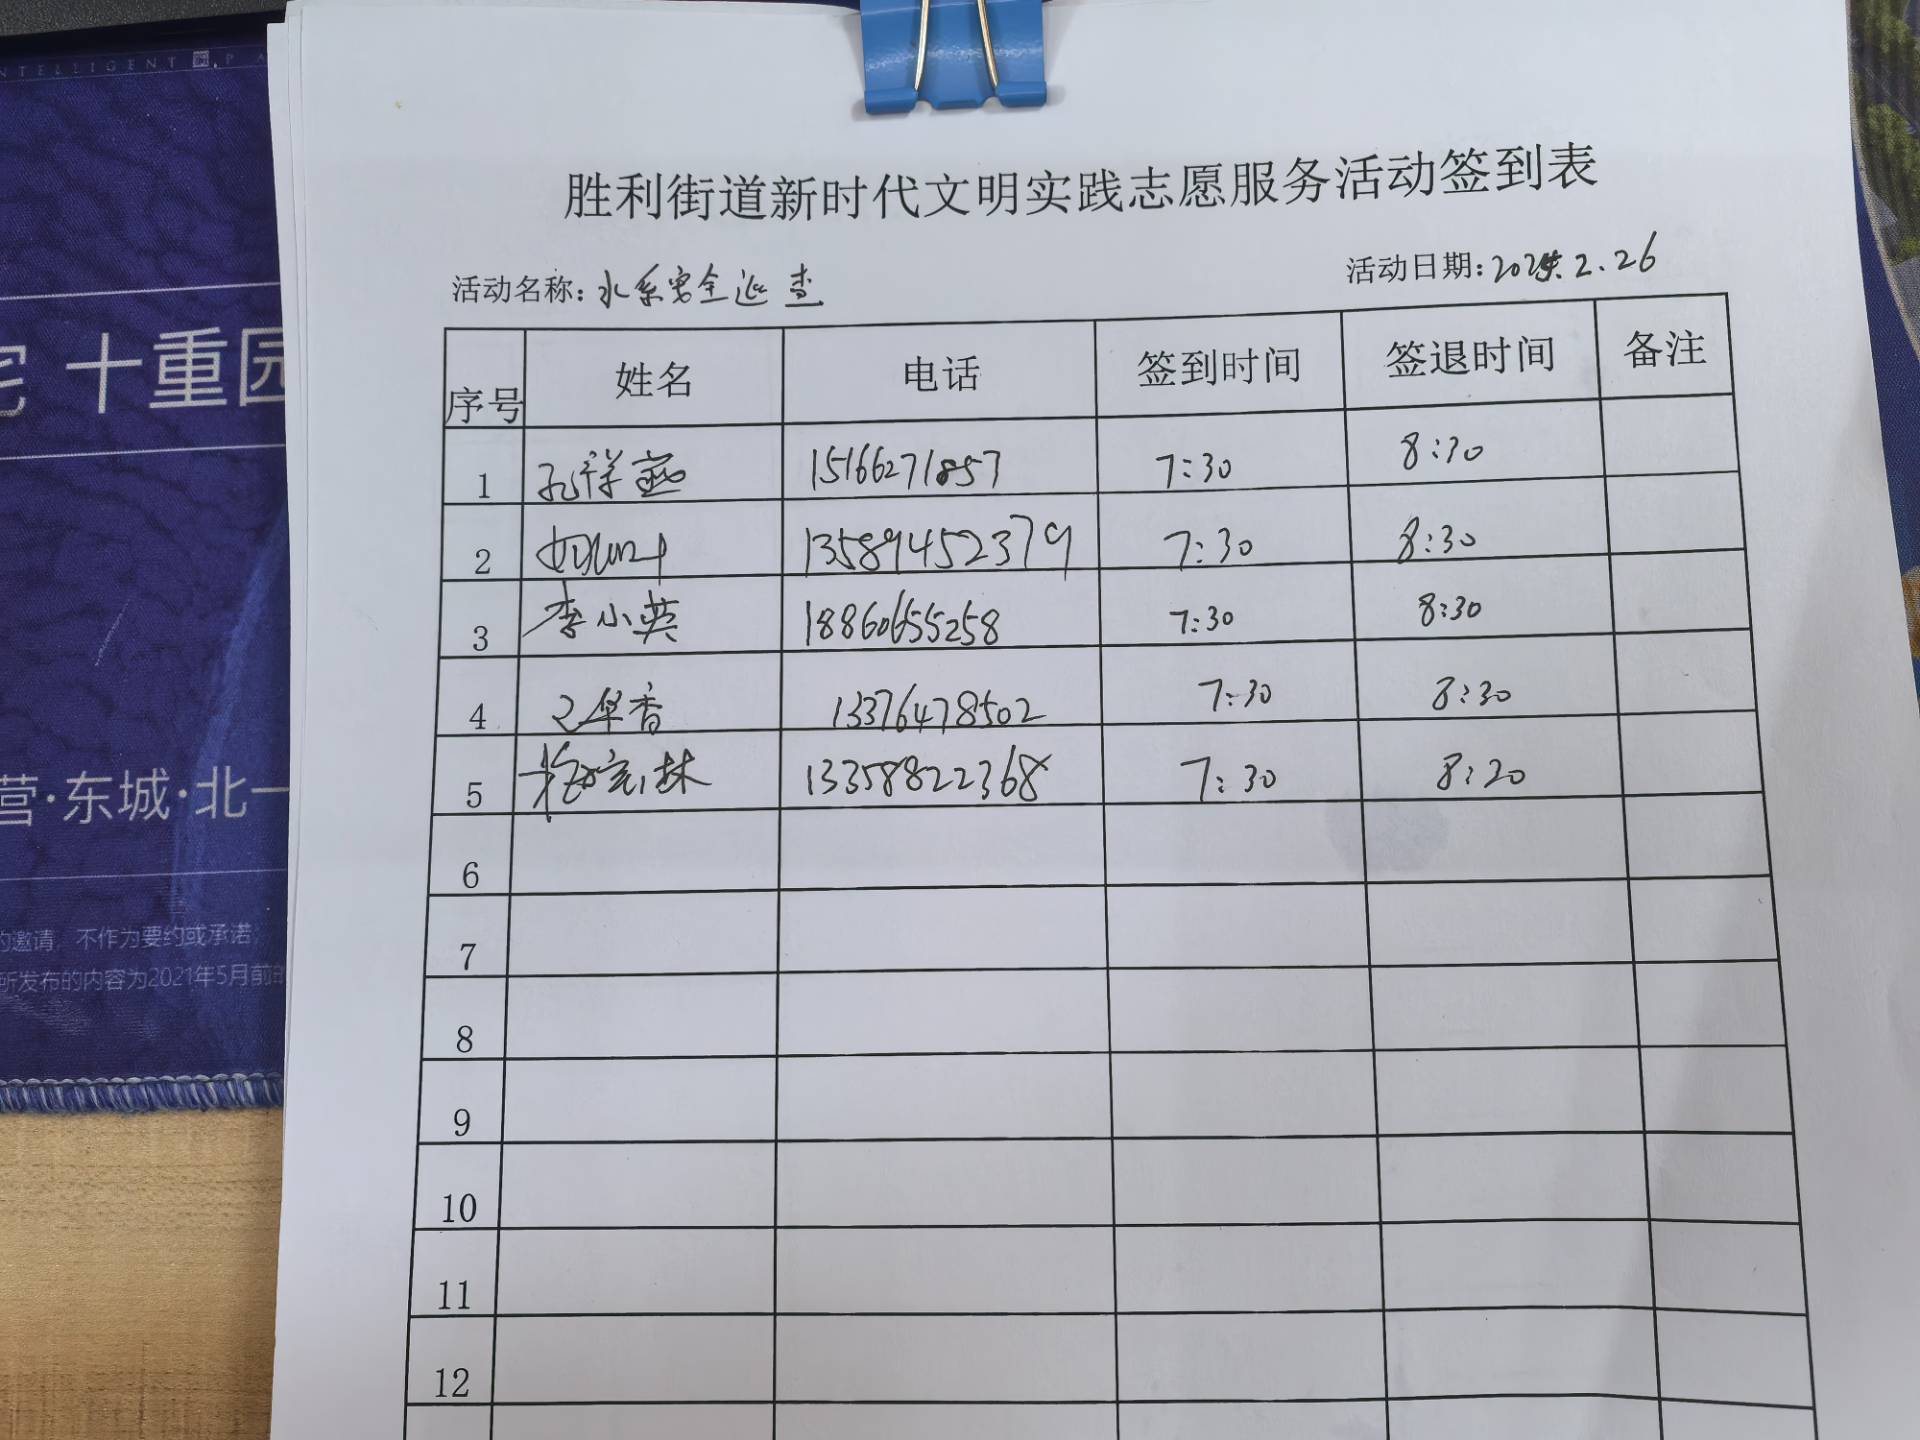 INTELLIGENT PA
宅 十重园
营·东城·北一
的邀请，不作为要约或承诺；
所发布的内容为2021年5月前的
胜利街道新时代文明实践志愿服务活动签到表
活动名称：水系安全巡查 活动日期：2.26
序号 姓名 电话 签到时间 签退时间 备注
1 孔祥燕 15166271857 7:30 8:30
2 13589452379 7:30 8:30
3 李小英 18860655258 7:30 8:30
4 华香 13376478502 7:30 8:30
5 林 13358822368 7:30 8:20
6
7
8
9
10
11
12